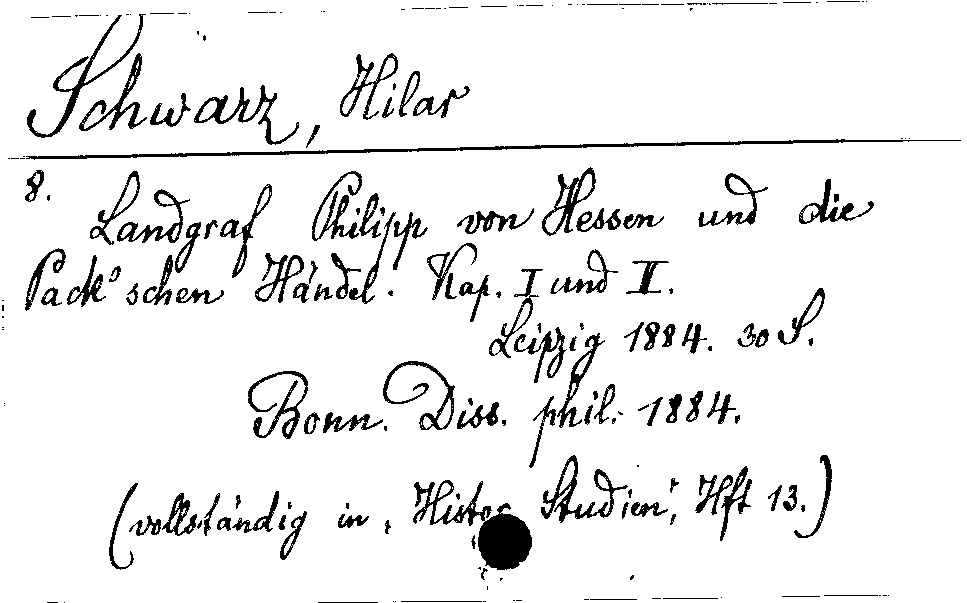 Schwarz, Hilar
8.
Landgraf Philipp von Hessen und die
Pack'schen Händel. Kap. I und II.
Leipzig 1884. 30 S.
Bonn. Diss. phil. 1884.
(vollständig in „Histor. Studien", Hft 13.)